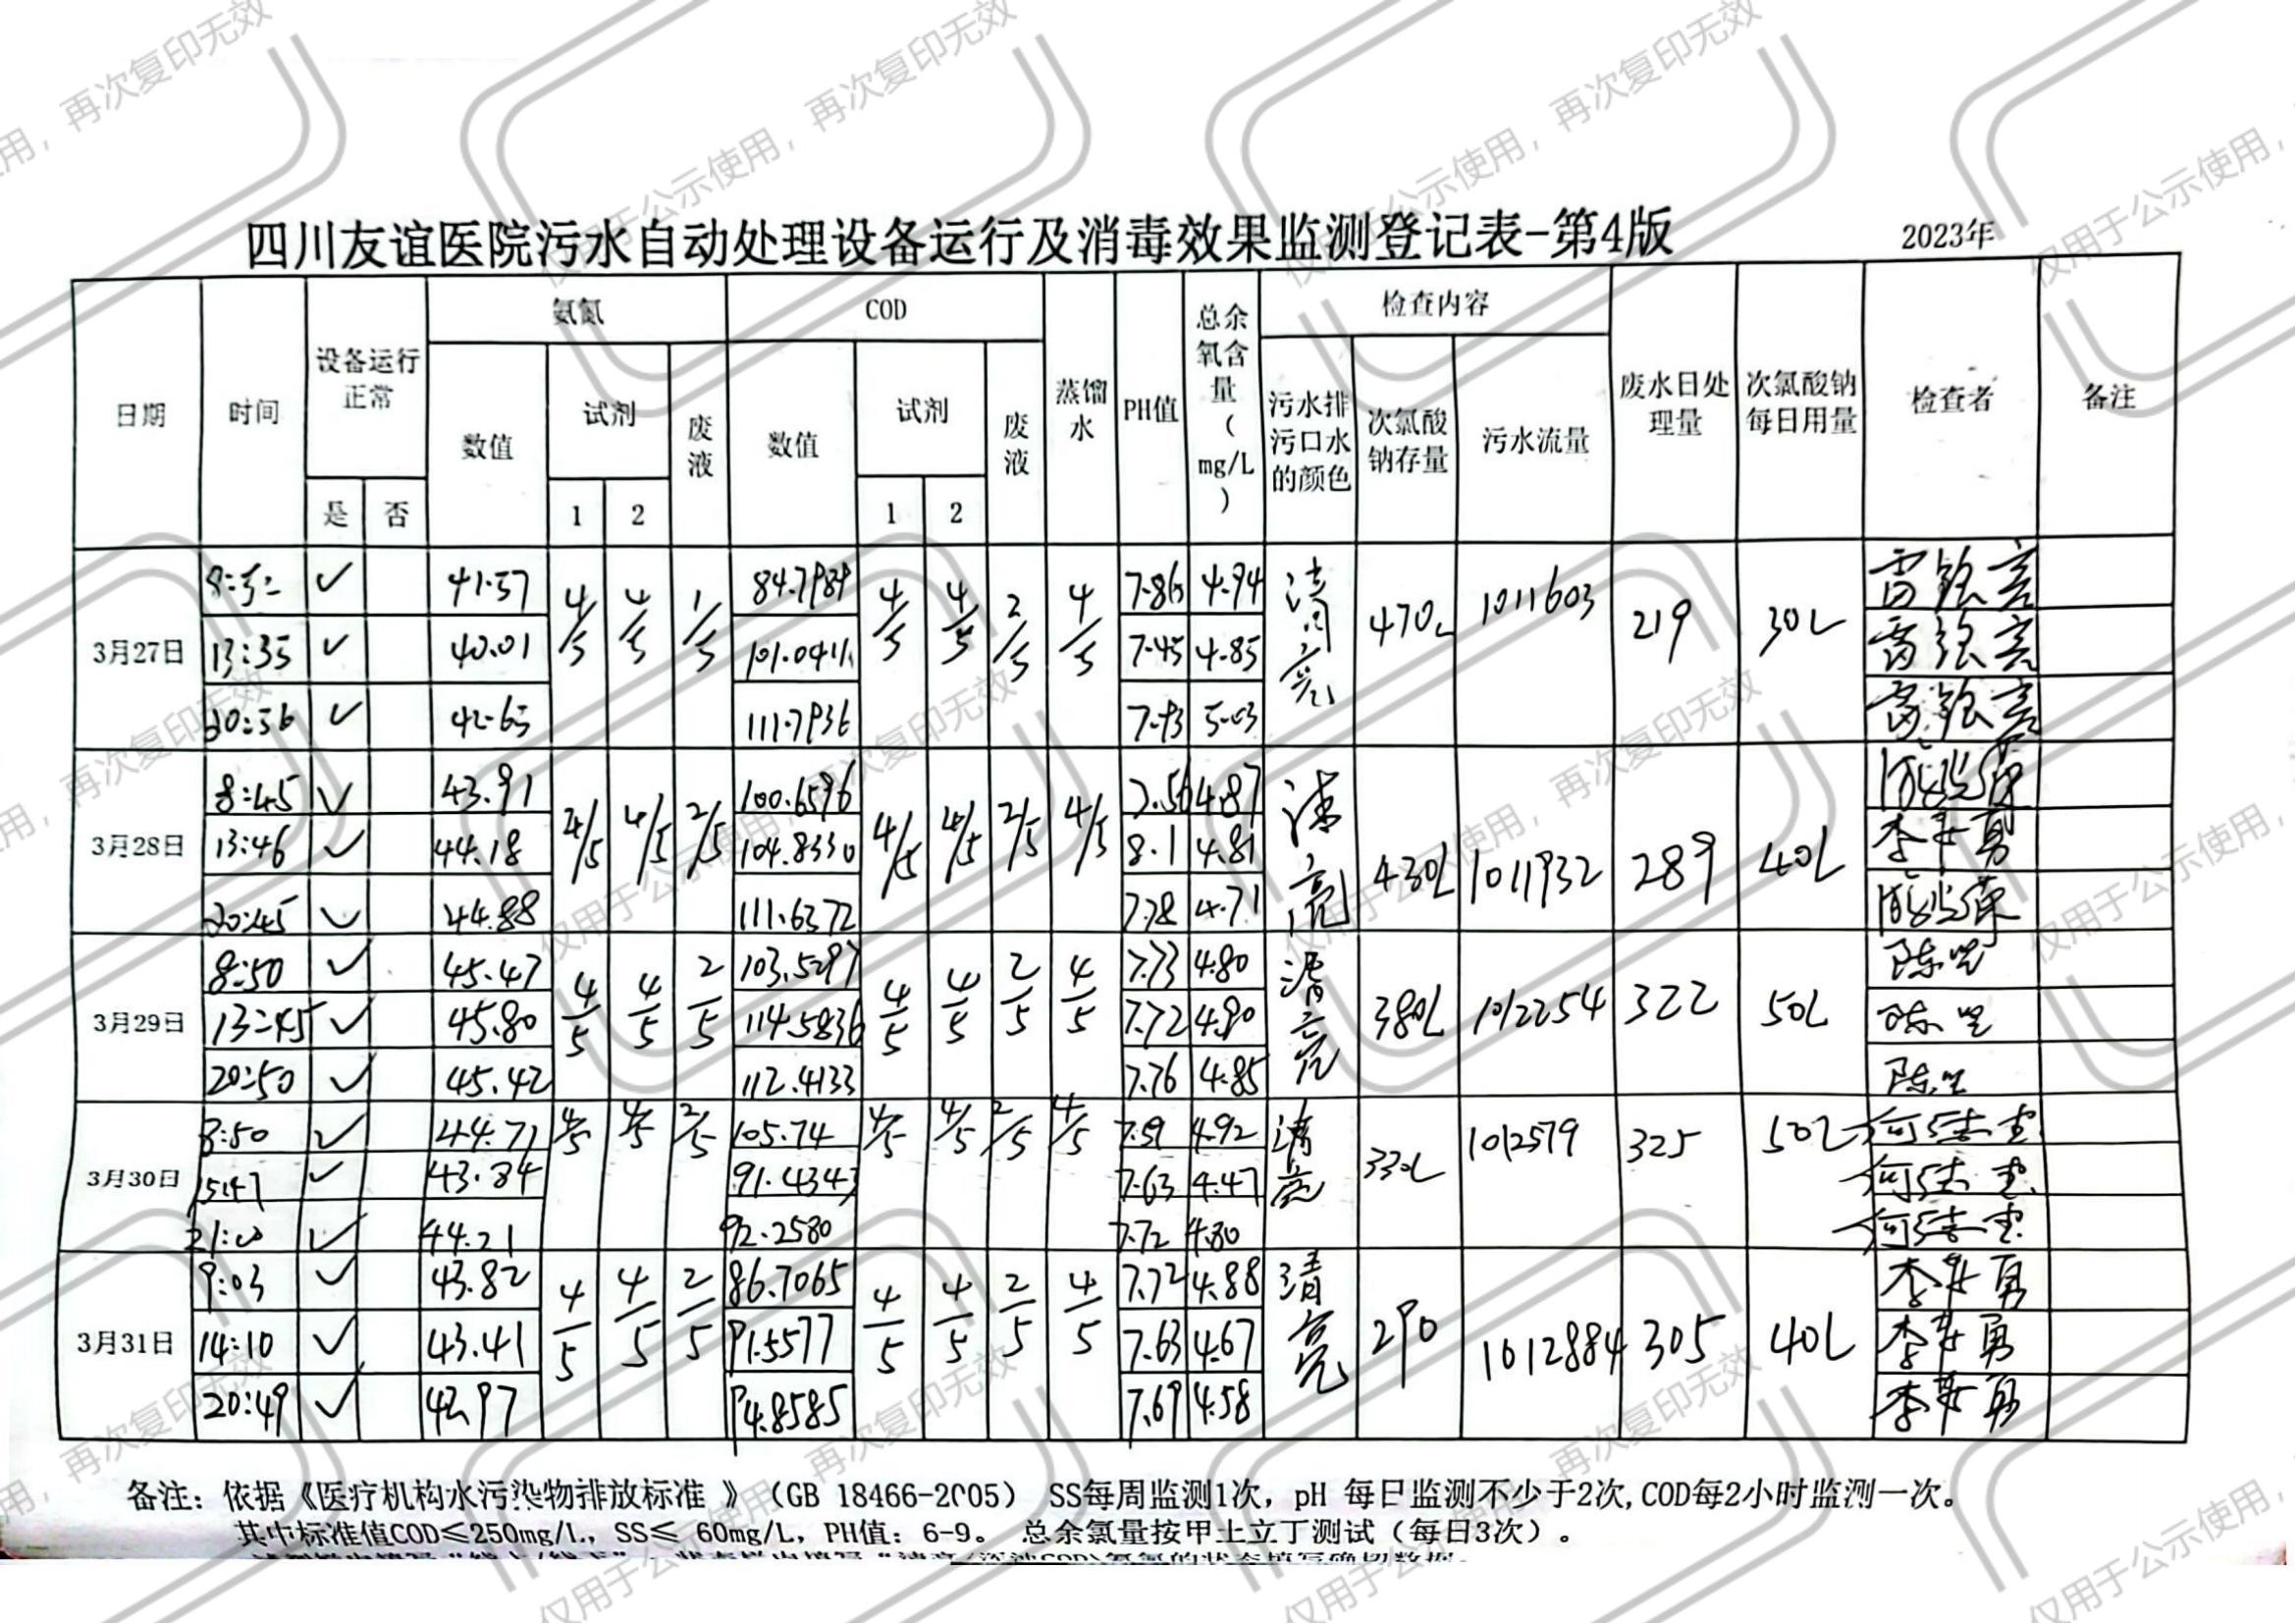 四川友谊医院污水自动处理设备运行及消毒效果监测登记表-第4版 2023年
日期 时间 设备运行正常 氨氮 COD 蒸馏水 PH值 总余氧含量(mg/L) 检查内容 废水日处理量 次氯酸钠每日用量 检查者 备注
是 否 数值 试剂 废液 数值 试剂 废液 污水排污口水的颜色 次氯酸钠存量 污水流量
1 2 1 2
3月27日 ✓ 41.57 4/5 4/5 1/5 84.7989 4/5 4/5 2/5 4/5 7.86 4.94 清亮 470L 1011603 219 30L
13:35 ✓ 40.01 7.45 4.85
20:56 ✓ 42.65 111.7936 7.93 5.03
3月28日 8:45 ✓ 43.91 4/5 4/5 2/5 100.6596 4/5 4/5 2/5 4/5 7.56 4.87 清亮 430L 1011932 289 40L
13:46 ✓ 44.18 104.8330 8.1 4.81 李华勇
20:45 ✓ 44.88 111.6372 7.78 4.71
3月29日 8:50 ✓ 45.47 4/5 4/5 2/5 103.5297 4/5 4/5 2/5 4/5 7.73 4.80 清亮 380L 1012254 322 50L
13:45 ✓ 45.80 114.5836 7.72 4.90
20:50 ✓ 45.42 112.4133 7.76 4.85
3月30日 8:50 ✓ 44.71 4/5 4/5 2/5 105.74 4/5 4/5 2/5 4/5 7.59 4.92 清亮 330L 1012579 325 50L
15:47 ✓ 43.84 91.4343 7.63 4.47
21:00 ✓ 44.21 92.2580 7.72 4.80
3月31日 9:03 ✓ 43.82 4/5 4/5 2/5 86.7065 4/5 4/5 2/5 4/5 7.72 4.88 清亮 290 1012884 305 40L 李华勇
14:10 ✓ 43.41 91.5577 7.63 4.67 李华勇
20:49 ✓ 42.97 94.8585 7.69 4.58 李华勇
备注：依据《医疗机构水污染物排放标准 》（GB 18466-2005） SS每周监测1次，pH 每日监测不少于2次,COD每2小时监测一次。
其中标准值COD≤250mg/L，SS≤ 60mg/L，PH值：6-9。 总余氯量按甲土立丁测试（每日3次）。
仅用于公示使用，再次复印无效